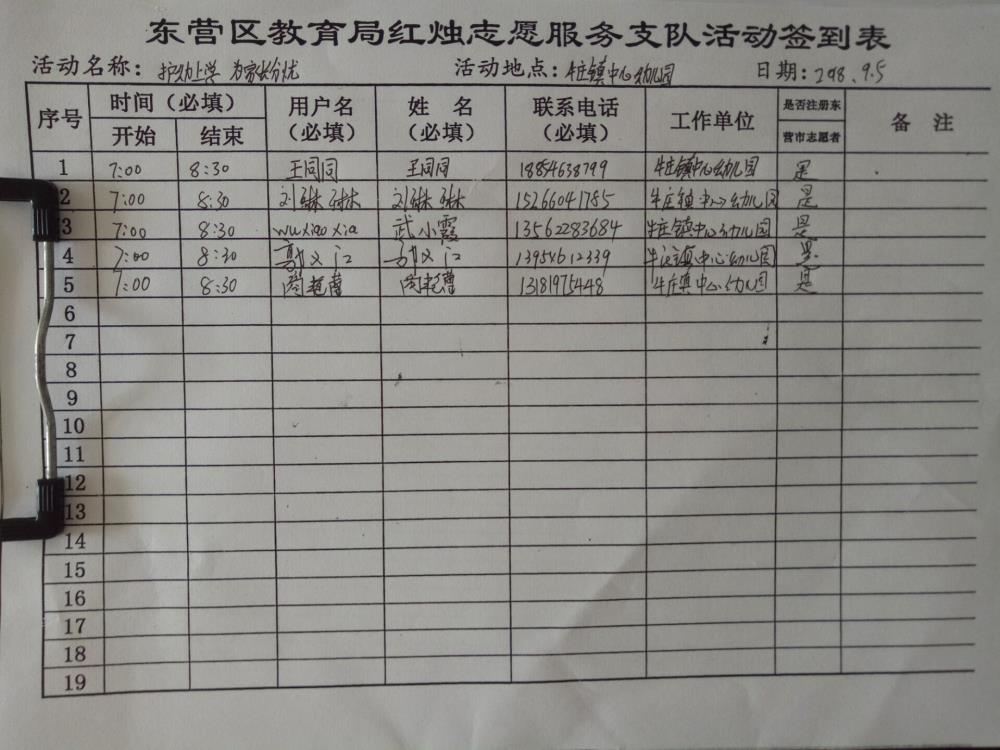 东营区教育局红烛志愿服务支队活动签到表
活动名称：护幼上学 为家长分忧 活动地点：牛庄镇中心幼儿园 日期：2018.9.5
序号 时间（必填） 开始 结束 用户名（必填） 姓 名（必填） 联系电话（必填） 工作单位 是否注册东营市志愿者 备 注
1 7:00 8:30 王同同 王同同 18854638799 牛庄镇中心幼儿园 是
2 7:00 8:30 刘琳琳 刘琳琳 15266041785 牛庄镇中心幼儿园 是
3 7:00 8:30 wuxiaoxia 武小霞 13562283684 牛庄镇中心幼儿园 是
4 7:00 8:30 13954612339 牛庄镇中心幼儿园 是
5 7:00 8:30 13181975448 牛庄镇中心幼儿园 是
6
7
8
9
10
11
12
13
14
15
16
17
18
19